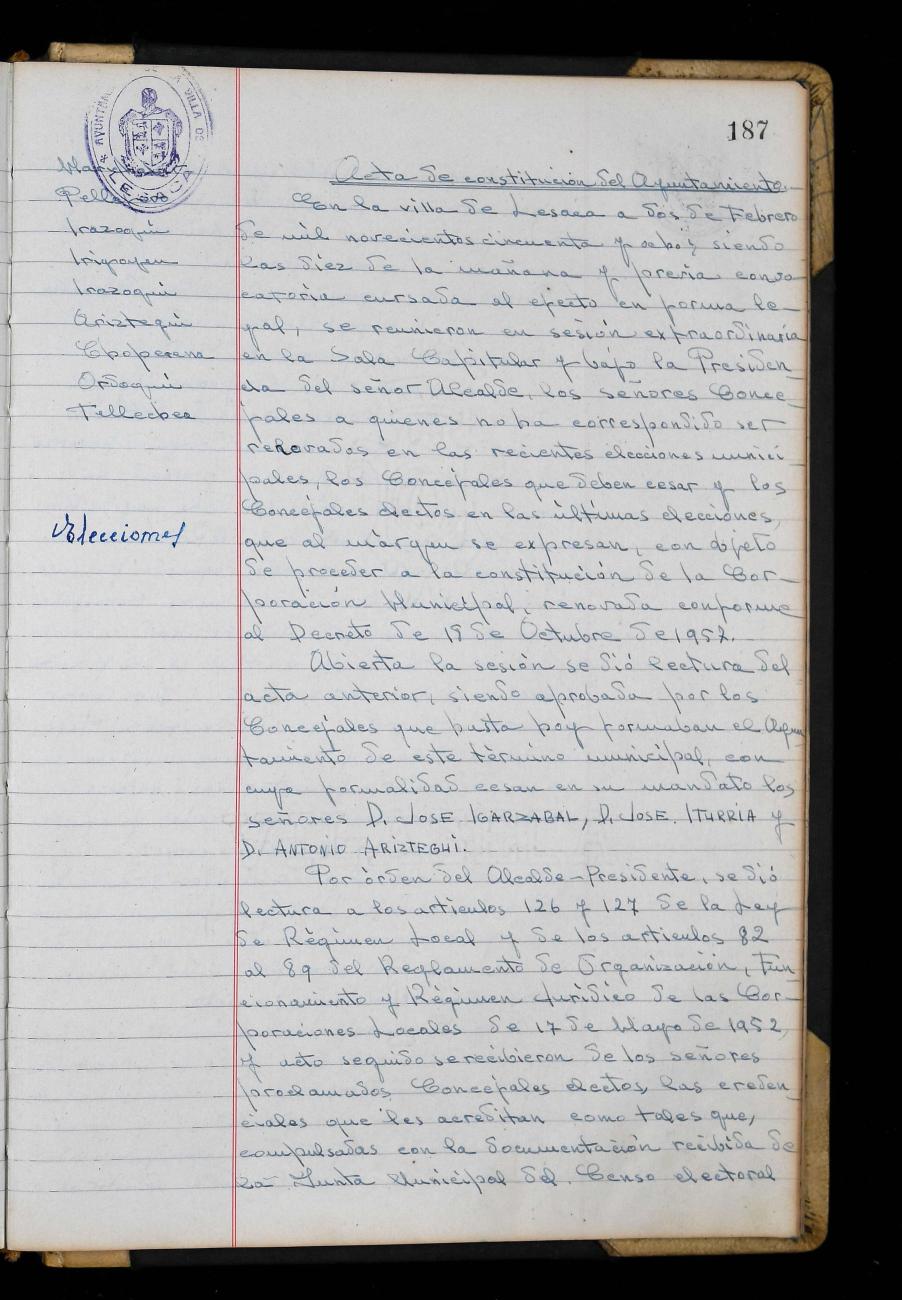 187
AYUNTAM DE LA VILLA DE
LESACA
Pelle
Irazoqui
Irigoyen
Irazoqui
Ariztegui
Choperena
Ordoqui
Tellechea
Elecciones
Acta de constitución del Ayuntamiento
En la villa de Lesaca a dos de Febrero
de mil novecientos cincuenta y ocho y siendo
las diez de la mañana y previa convo
catoria cursada al efecto en forma le-
gal, se reunieron en sesión extraordinaria
en la Sala Capitular y bajo la Presiden_
cia del señor Alcalde, los señores Conce_
jales a quienes no ha correspondido ser
renovados en las recientes elecciones munici_
pales, los Concejales que deben cesar y los
Concejales electos en las últimas elecciones,
que al márgen se expresan, con objeto
de proceder a la constitución de la Cor-
poración Municipal, renovada conforme
al Decreto de 15 de Octubre de 1957.
Abierta la sesión se dió lectura del
acta anterior, siendo aprobada por los
Concejales que hasta hoy formaban el Ayun
tamiento de este término municipal, con
cuya formalidad cesan en su mandato los
señores D. JOSE IGARZABAL, D. JOSE. ITURRIA y
D. ANTONIO ARIZTEGUI.
Por órden del Alcalde-Presidente, se dió
lectura a los articulos 126 y 127 de la Ley
de Règimen Local y de los articulos 82
al 89 del Reglamento de Organización, Fun
cionamiento y Règimen Juridico de las Cor-
poraciones Locales de 17 de Mayo de 1952,
y acto seguido se recibieron de los señores
proclamados Concejales electos, las creden_
ciales que les acreditan como tales que,
compulsadas con la documentación recibida de
la Junta Municipal del Censo electoral